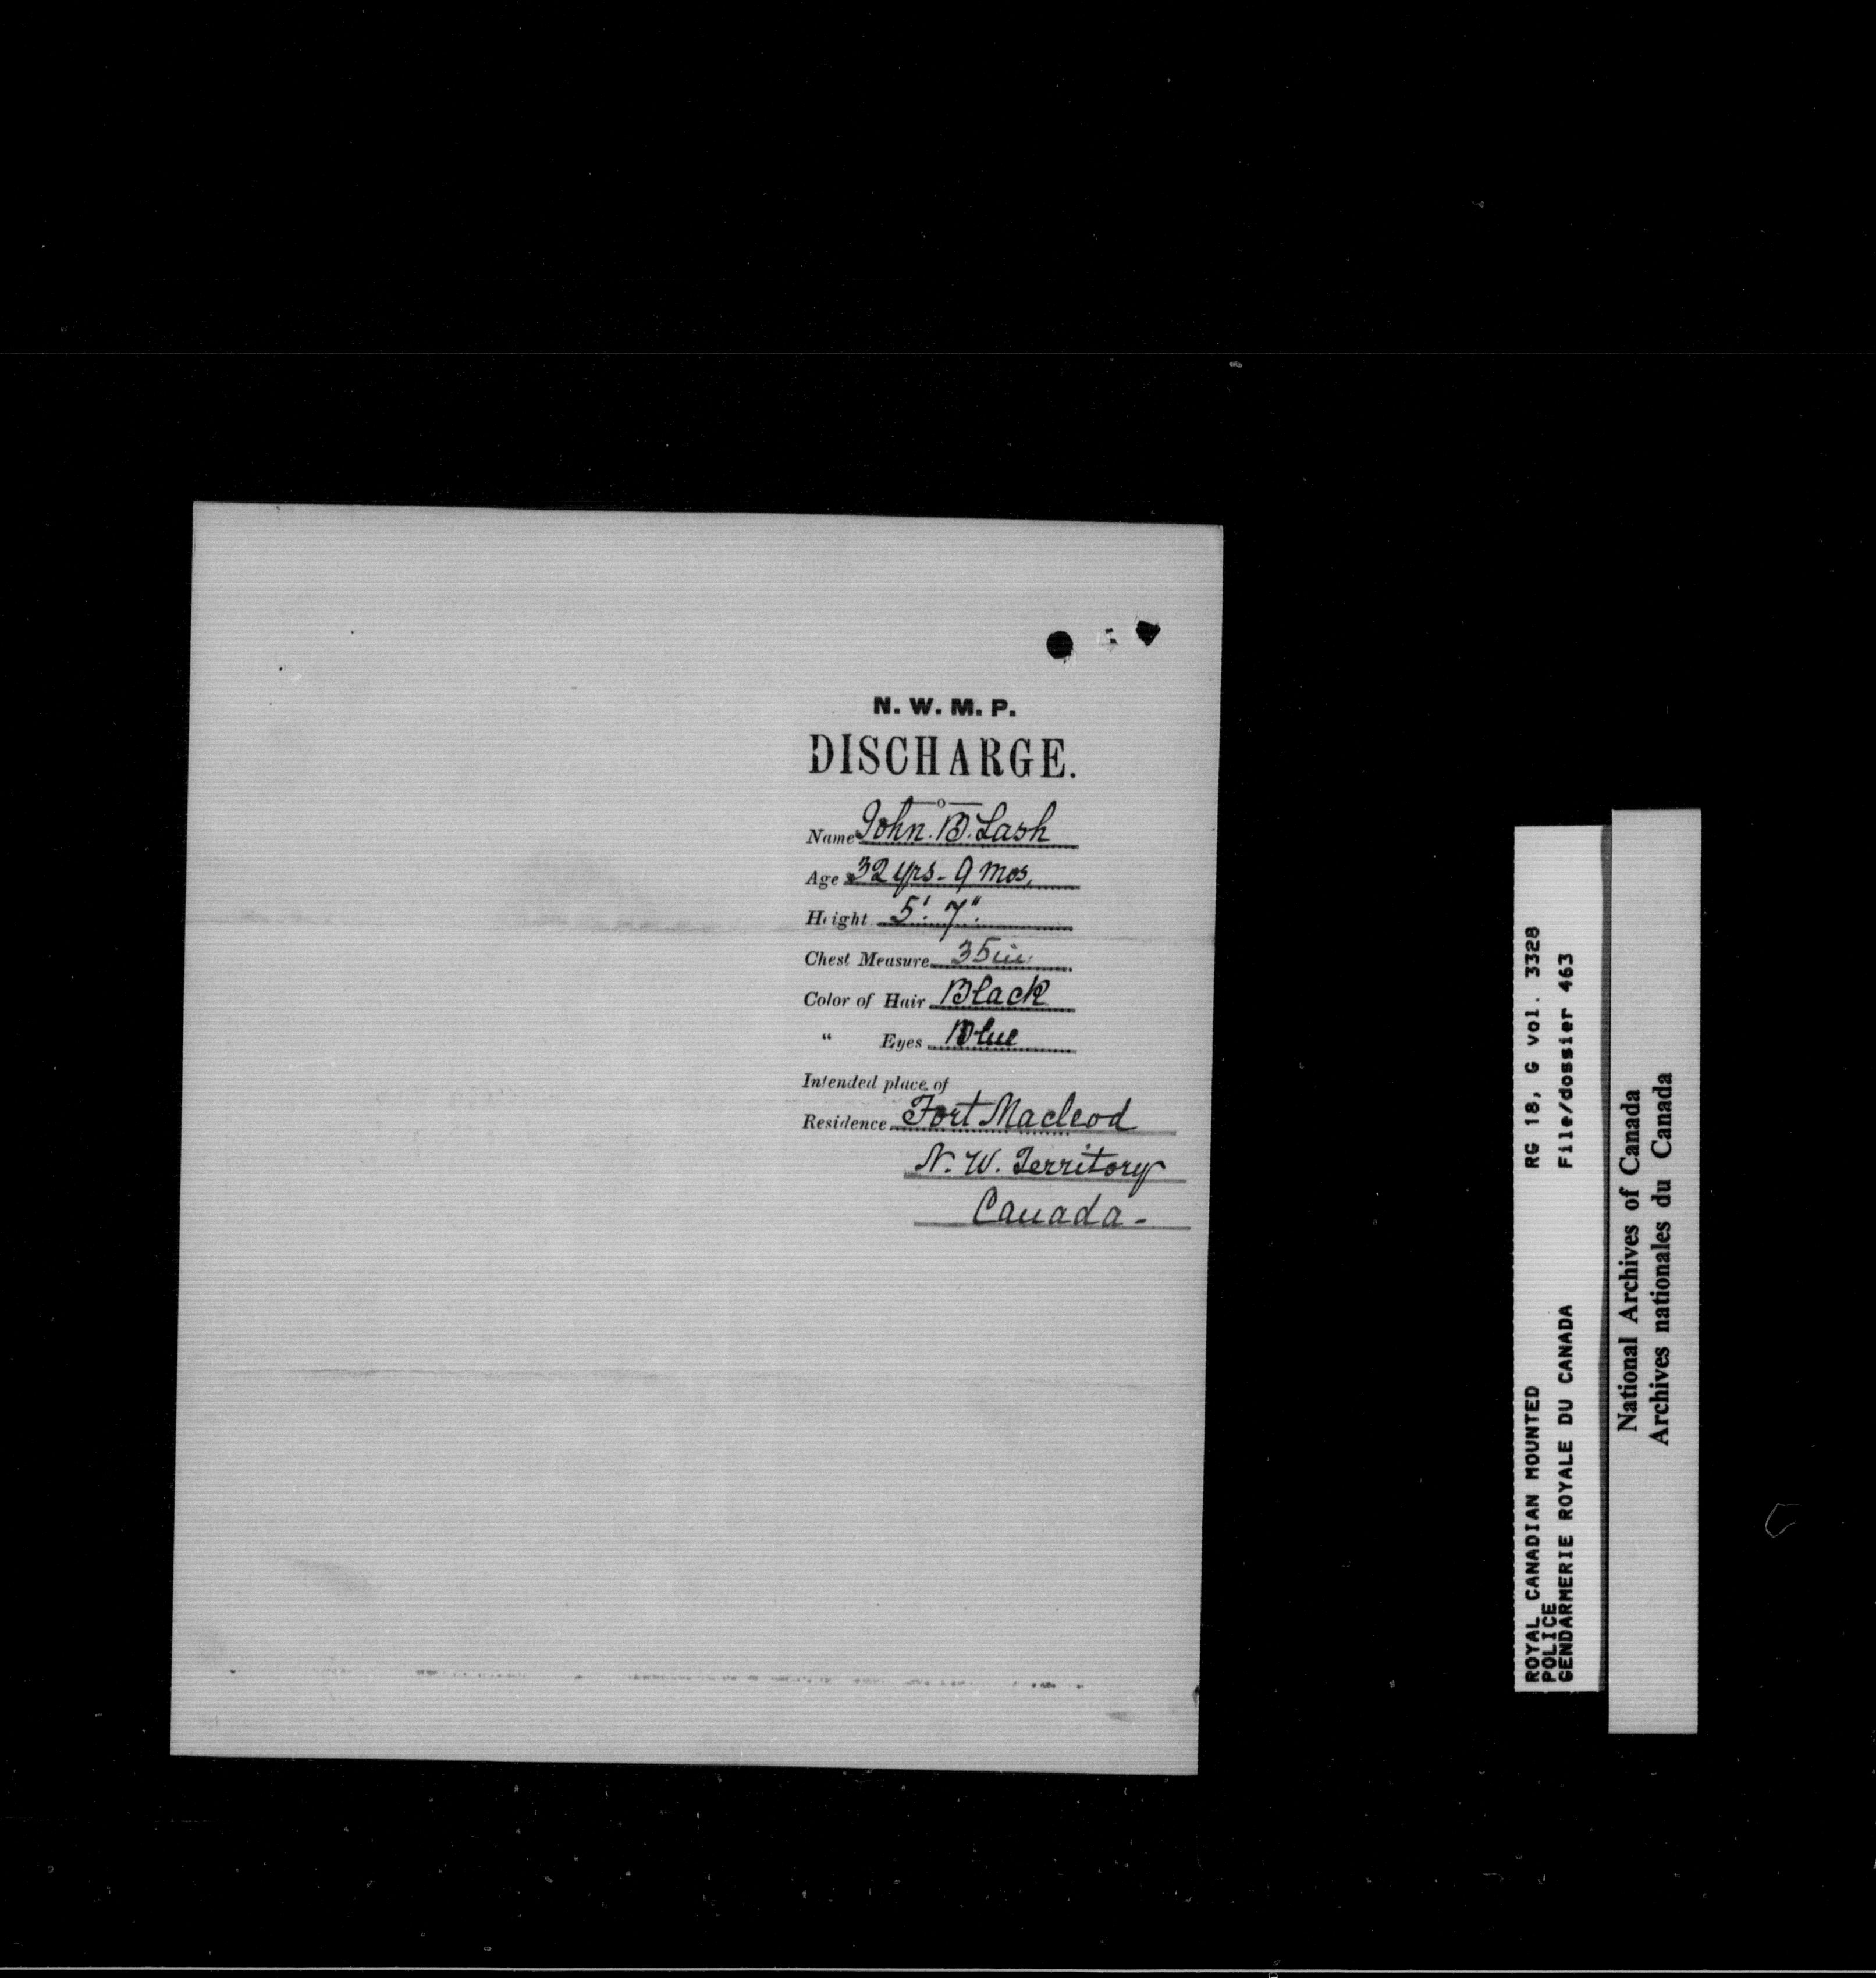 N. W. M. P.
DISCHARGE.
Name John. B. Lash
Age 32 yrs - 9 mos,
Height 5'. 7".
Chest Measure 35 in
Color of Hair Black
" Eyes Blue
Intended place of
Residence Fort Macleod
N. W. Territory
Canada -
ROYAL CANADIAN MOUNTED RG 18, G vol. 3328
POLICE
GENDARMERIE ROYALE DU CANADA File/dossier 463
National Archives of Canada
Archives nationales du Canada